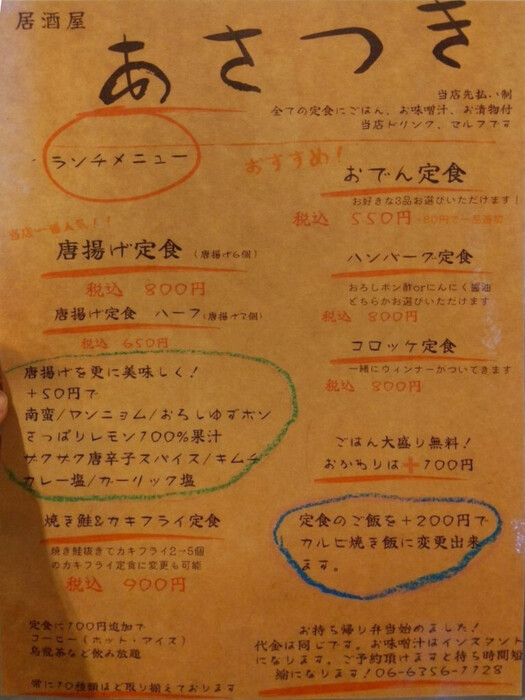 居酒屋
あさつき
当店先払い制
全ての定食にごはん、お味噌汁、お漬物付
当店ドリンク、セルフです
ランチメニュー
おすすめ!
おでん定食
お好きな3品お選びいただけます!
税込 550円 +80円で一品追加
当店一番人気!!
唐揚げ定食 (唐揚げ6個)
税込 800円
唐揚げ定食 ハーフ(唐揚げ3個)
税込 650円
ハンバーグ定食
おろしポン酢orにんにく醤油
どちらかお選びいただけます
税込 800円
コロッケ定食
一緒にウィンナーがついてきます
税込 800円
唐揚げを更に美味しく!
+50円で
南蛮/ヤンニョム/おろしゆずポン
さっぱりレモン100%果汁
ザクザク唐辛子スパイス/キムチ
カレー塩/ガーリック塩
ごはん大盛り無料!
おかわりは+100円
焼き鮭&カキフライ定食
焼き鮭抜きでカキフライ2→5個
のカキフライ定食に変更も可能
税込 900円
定食のご飯を+200円で
カルビ焼き飯に変更出来
ます。
定食に100円追加で
コーヒー(ホット・アイス)
烏龍茶など飲み放題
常に10種類ほど取り揃えております
お持ち帰り弁当始めました!
代金は同じです。お味噌汁はインスタント
になります。ご予約頂けますと待ち時間短
縮になります!06-6356-1128